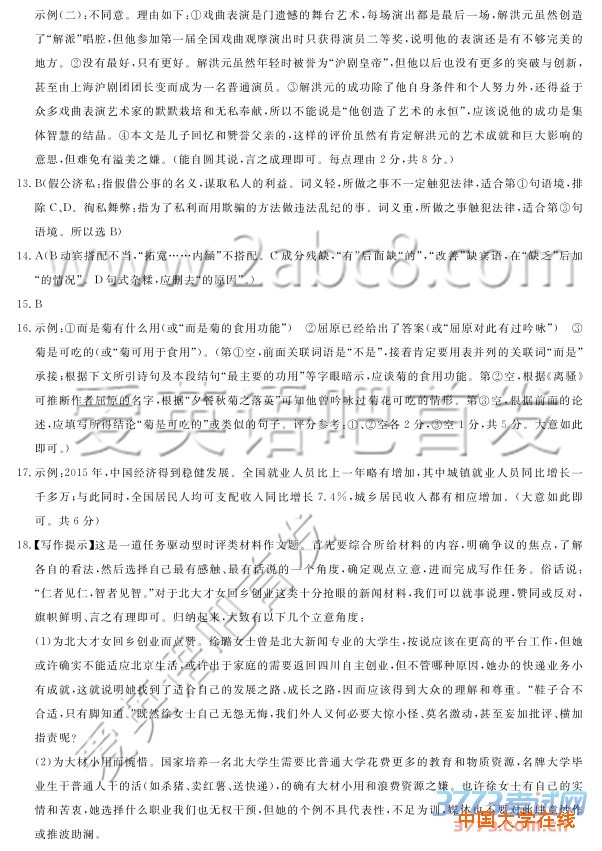 示例(二):不同意。理由如下:①戏曲表演是门遗憾的舞台艺术,每场演出都是最后一场,解洪元虽然创造
了“解派”唱腔,但他参加第一届全国戏曲观摩演出时只获得演员二等奖,说明他的表演还是有不够完美的
地方。②没有最好,只有更好。解洪元虽然年轻时被誉为“沪剧皇帝”,但他以后也没有更多的突破与创新,
甚至由上海沪剧团团长变而成为一名普通演员。③解洪元的成功除了他自身条件和个人努力外,还得益于
众多戏曲表演艺术家的默默栽培和无私奉献,所以不能说是“他创造了艺术的永恒”,应该说他的成功是集
体智慧的结晶。④本文是儿子回忆和赞誉父亲的,这样的评价虽然有肯定解洪元的艺术成就和巨大影响的
意思,但难免有溢美之嫌。(能自圆其说,言之成理即可。每点理由2分,共8分。)
13. B(假公济私:指假借公事的名义,谋取私人的利益。词义轻,所做之事不一定触犯法律,适合第①句语境,排
除C、D。徇私舞弊:指为了私利而用欺骗的方法做违法乱纪的事。词义重,所做之事触犯法律,适合第③句
语境。所以选B)
14. A(B动宾搭配不当,“拓宽……内涵”不搭配。C成分残缺,“有”后面缺“的”,“改善”缺宾语,在“缺乏”后加
“的情况”。D句式杂糅,应删去“的原因”。)
15. B
16. 示例:①而是菊有什么用(或“而是菊的食用功能”) ②屈原已经给出了答案(或“屈原对此有过吟咏”) ③
菊是可吃的(或“菊可用于食用”)。(第①空,前面关联词语是“不是”,接着肯定要用表并列的关联词“而是”
承接;根据下文所引诗句及本段结句“最主要的功用”等字眼暗示,应谈菊的食用功能。第②空,根据《离骚》
可推断作者屈原的名字,根据“夕餐秋菊之落英”可知他曾吟咏过菊花可吃的情形。第③空,根据前面的论
述,应填写所得结论“菊是可吃的”或类似的句子。评分参考:①、②空各2分,③空1分,共5分。大意如此
即可。)
17. 示例:2015年,中国经济得到稳健发展。全国就业人员比上一年略有增加,其中城镇就业人员同比增长一
千多万;与此同时,全国居民人均可支配收入同比增长7.4%,城乡居民收入都有相应增加。(大意如此即
可。共6分)
18.【写作提示】这是一道任务驱动型时评类材料作文题。首先要综合所给材料的内容,明确争议的焦点,了解
各自的看法,然后选择自己最有感触、最有话说的一个角度,确定观点立意,进而完成写作任务。俗话说:
“仁者见仁,智者见智。”对于北大才女回乡创业这类十分抢眼的新闻材料,我们可以就事说理,赞同或反对,
旗帜鲜明、言之有理即可。归纳起来,大致有以下几个立意角度:
(1)为北大才女回乡创业而点赞。徐璐女士曾是北大新闻专业的大学生,按说应该在更高的平台工作,但她
或许确实不能适应北京生活,或许出于家庭的需要返回四川自主创业,但不管哪种原因,她办的快递业务小
有成就,这就说明她找到了适合自己的发展之路、成长之路,因而应该得到大众的理解和尊重。“鞋子合不
合适,只有脚知道。”既然徐女士自己无怨无悔,我们外人又何必要大惊小怪、莫名激动,甚至妄加批评、横加
指责呢?
(2)为大材小用而惋惜。国家培养一名北大学生需要比普通大学花费更多的教育和物质资源,名牌大学毕
业生干普通人干的活(如杀猪、卖红薯、送快递),的确有大材小用和浪费资源之嫌。也许徐女士有自己的实
情和苦衷,她选择什么职业我们也无权干预,但她的个例不具代表性,不足为训,媒体也不要对此肆意炒作
或推波助澜。
www.2abc8.com
爱英语吧首发
爱英语吧首发
3773考试网
中国大学在线